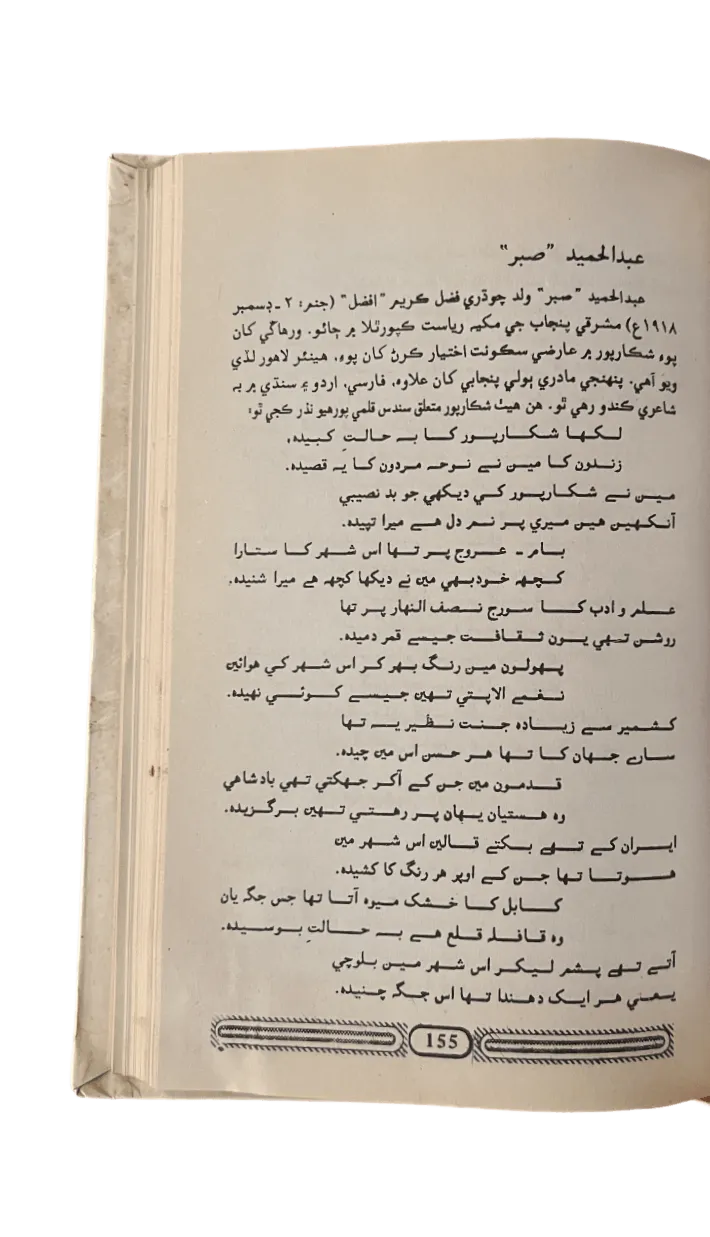 عبدالحميد "صبر"
عبدالحميد "صبر" ولد چوڌري فضل ڪريم "افضل" (جنم: ٢ ـ ڊسمبر
١٩١٨ع) مشرقي پنجاب جي مکيه رياست ڪپورٿلا ۾ ڄائو. ورهاڱي کان
پوءِ شڪارپور ۾ عارضي سڪونت اختيار ڪرڻ کان پوءِ، هينئر لاهور لڏي
ويو آهي. پنهنجي مادري ٻولي پنجابي کان علاوه، فارسي، اردو ۽ سنڌي ۾ به
شاعري ڪندو رهي ٿو. هن هيٺ شڪارپور متعلق سندس قلمي پورهيو نذر ڪجي ٿو:
لکها شڪارپور ڪا بہ حالتِ ڪبيده،
زندون ڪا مين نے نوحہ مردون ڪا يہ قصيده.
مين نے شڪارپور ڪي ديکهي جو بد نصيبي
آنکهين هين ميري پر نم دل هے ميرا تپيده.
بام ـ عروج پر تها اس شهر ڪا ستارا
ڪچهہ خودبهي مين نے ديکها ڪچهہ هے ميرا شنيده.
علم و ادب ڪا سورج نصف النهار پر تها
روشن تهي يون ثقافت جيسے قمر دميده.
پهولون مين رنگ بهر ڪر اس شهر ڪي هوائين
نغمے الاپتي تهين جيسے ڪوئي نهيده.
ڪشمير سے زياده جنت نظير يہ تها
سارے جهان ڪا تها هر حسن اس مين چيده.
قدمون مين جن ڪے آڪر جهڪتي تهي بادشاهي
وه هستيان يهان پر رهتي تهين برگزيده.
ايران ڪے تهے بڪتے قالين اس شهر مين
هوتا تها جن ڪے اوپر هر رنگ ڪا ڪشيده.
ڪابل ڪا خشڪ ميوه آتا تها جس جگہ يان
وه قافلہ قلع هے بہ حالتِ بوسيده.
آتے تهے پشم ليڪر اس شهر مين بلوچي
يعني هر ايڪ دهندا تها اس جگہ چنيده.
155